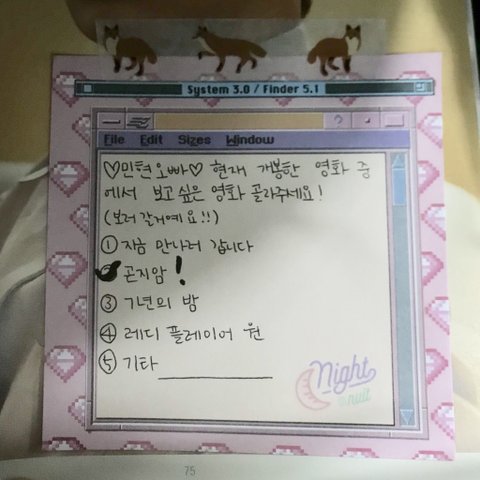 System 3.0 / Finder 5.1
File Edit Sizes Window
♡민현오빠♡ 현재 개봉한 영화 중
에서 보고싶은 영화 골라주세요!
(보러 갈거예요!!)
① 지금 만나러 갑니다
② 곤지암!
③ 7년의 밤
④ 레디 플레이어 원
⑤ 기타
Night
null
75